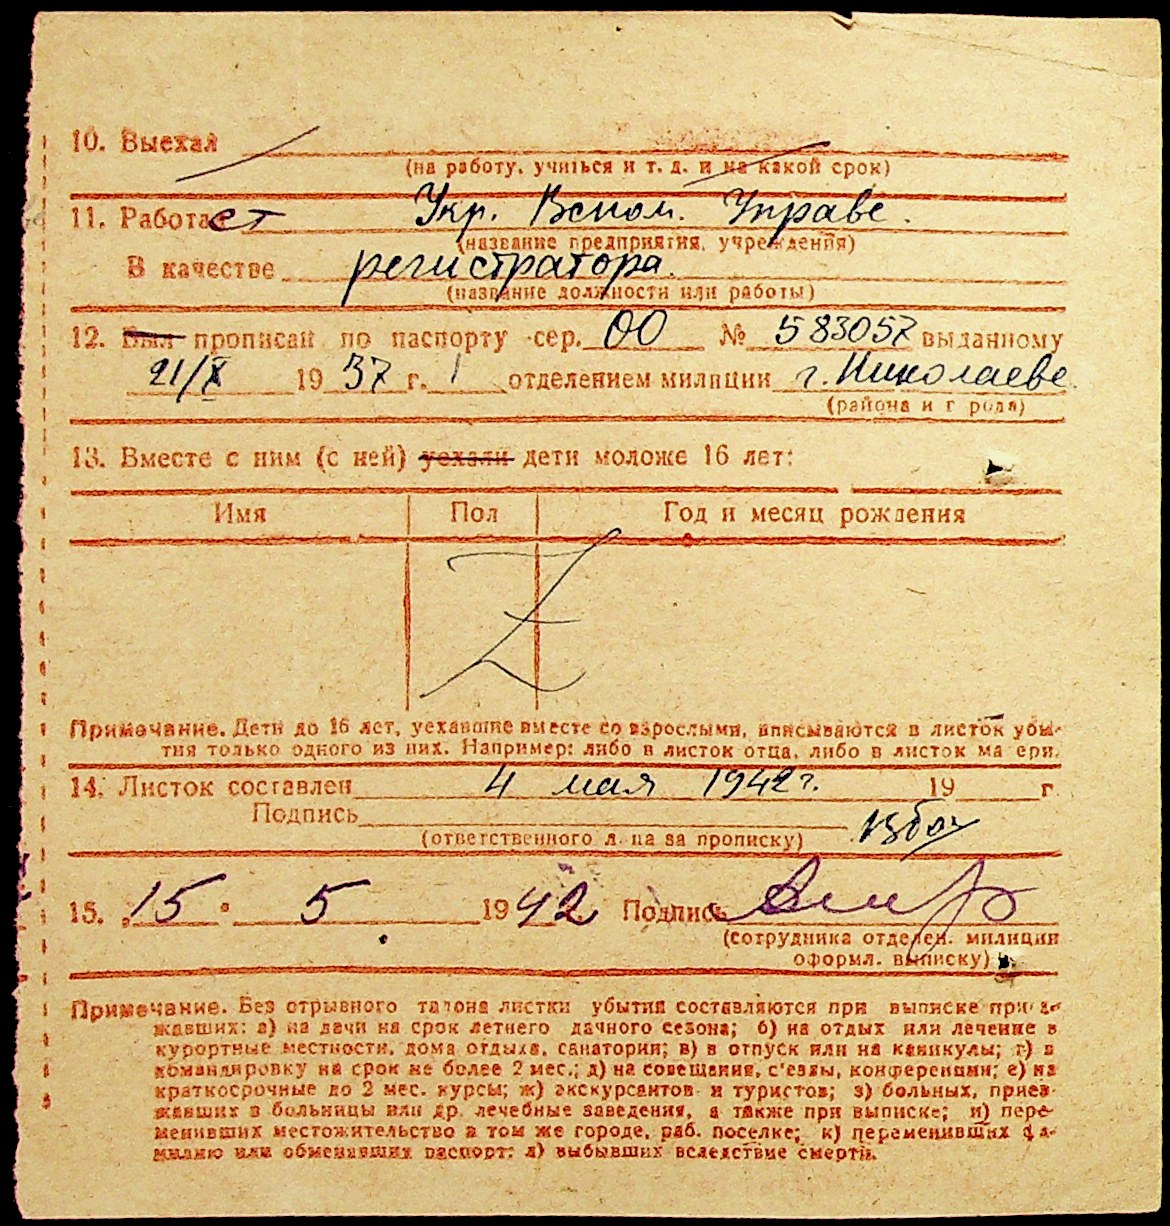 10. Выехал
(на работу, учиться и т. д. и на какой срок)
11. Работает Укр. Вспом. Управе.
(название предприятия, учреждения)
В качестве регистратора.
(название должности или работы)
12. Был прописан по паспорту сер. 00 № 583057 выданному
21/X 1937 г. 1 отделением милиции г. Николаеве
(района и г рода)
13. Вместе с ним (с ней) уехали дети моложе 16 лет:
Имя Пол Год и месяц рождения
Z
Примечание. Дети до 16 лет, уехавшие вместе со взрослыми, вписываются в листок убы-
тия только одного из них. Например: либо в листок отца, либо в листок ма ери.
14. Листок составлен 4 мая 1942 г. 19 г
Подпись
(ответственного л. па за прописку)
15. „15" 5 1942 Подпись
(сотрудника отделен. милиции
оформл. выписку)
Примечание. Без отрывного талона листки убытия составляются при выписке приез-
жавших: а) на дачи на срок летнего дачного сезона; б) на отдых или лечение в
курортные местности, дома отдыха, санатории; в) в отпуск или на каникулы; г) в
командировку на срок не более 2 мес.; д) на совещания, с'езды, конференции; е) на
краткосрочные до 2 мес. курсы; ж) экскурсантов и туристов; з) больных, приез-
жавших в больницы или др. лечебные заведения, а также при выписке; и) пере-
менивших местожительство в том же городе, раб. поселке; к) переменивших фа-
милию или обменявших паспорт; л) выбывших вследствие смерти.